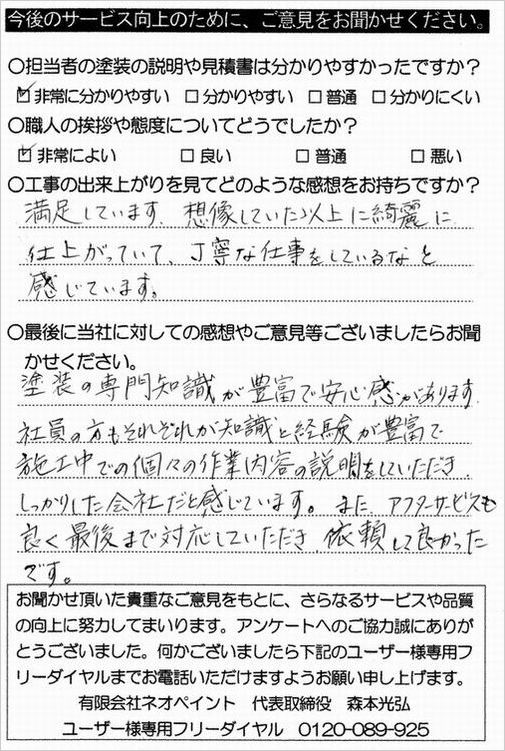 今後のサービス向上のために、ご意見をお聞かせください。
○担当者の塗装の説明や見積書は分かりやすかったですか？
☑非常に分かりやすい □分かりやすい □普通 □分かりにくい
○職人の挨拶や態度についてどうでしたか？
☑非常によい □良い □普通 □悪い
○工事の出来上がりを見てどのような感想をお持ちですか？
満足しています。想像していた以上に綺麗に
仕上がっていて、丁寧な仕事をしているなと
感じています。
○最後に当社に対しての感想やご意見等ございましたらお聞
かせください。
塗装の専門知識が豊富で安心感があります。
社員の方もそれぞれが知識と経験が豊富で
施工中での個々の作業内容の説明をしていただき、
しっかりした会社だと感じています。また、アフターサービスも
良く最後まで対応していただき、依頼して良かった
です。
お聞かせ頂いた貴重なご意見をもとに、さらなるサービスや品質
の向上に努力してまいります。アンケートへのご協力誠にありが
とうございました。何かございましたら下記のユーザー様専用フ
リーダイヤルまでお電話いただけますようお願い申し上げます。
有限会社ネオペイント 代表取締役 森本光弘
ユーザー様専用フリーダイヤル 0120-089-925